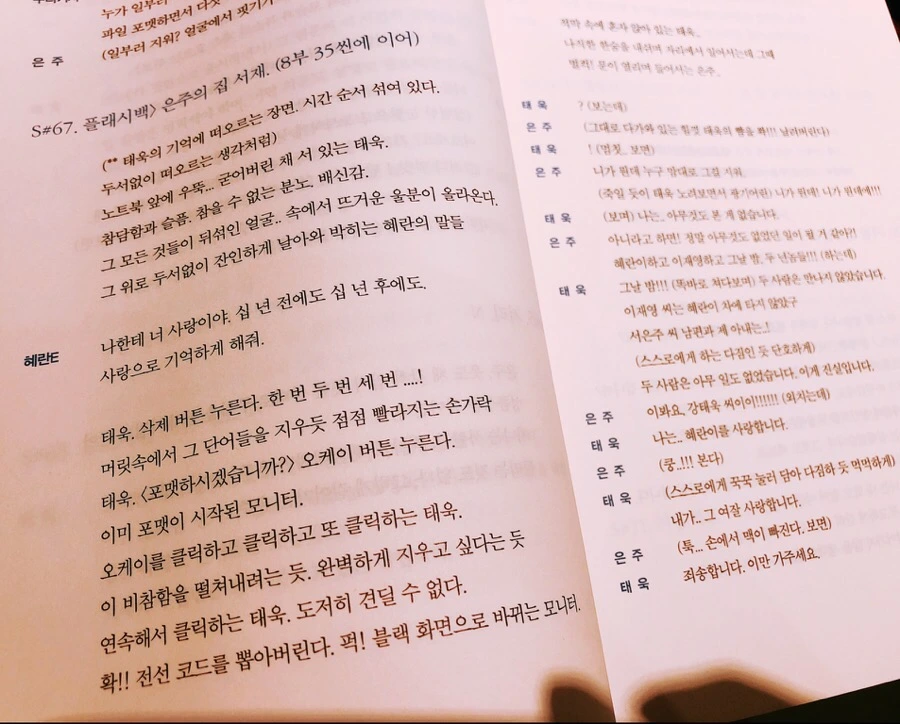 누가 일부러
파일 포맷하면서 다짓
은 주 (일부러 지워? 얼굴에서 핏기가
S#67. 플래시백> 은주의 집 서재. (8부 35씬에 이어)
(** 태욱의 기억에 떠오르는 장면. 시간 순서 섞여 있다.
두서없이 떠오르는 생각처럼)
노트북 앞에 우뚝... 굳어버린 채 서 있는 태욱.
참담함과 슬픔. 참을 수 없는 분노. 배신감.
그 모든 것들이 뒤섞인 얼굴.. 속에서 뜨거운 울분이 올라온다.
그 위로 두서없이 잔인하게 날아와 박히는 혜란의 말들
혜란E 나한테 너 사랑이야. 십 년 전에도 십 년 후에도.
사랑으로 기억하게 해줘.
태욱. 삭제 버튼 누른다. 한 번 두 번 세 번 ....!
머릿속에서 그 단어들을 지우듯 점점 빨라지는 손가락
태욱. <포맷하시겠습니까?> 오케이 버튼 누른다.
이미 포맷이 시작된 모니터.
오케이를 클릭하고 클릭하고 또 클릭하는 태욱.
이 비참함을 떨쳐내려는 듯. 완벽하게 지우고 싶다는 듯
연속해서 클릭하는 태욱. 도저히 견딜 수 없다.
확!! 전선 코드를 뽑아버린다. 퍽! 블랙 화면으로 바뀌는 모니터.
적막 속에 혼자 앉아 있는 태욱.
나직한 한숨을 내쉬며 자리에서 일어서는데 그때
벌컥! 문이 열리며 들어서는 은주.
태 욱 ? (보는데)
은 주 (그대로 다가와 있는 힘껏 태욱의 뺨을 쫘!!! 날려버린다)
태 욱 ! (멈칫. 보면)
은 주 니가 뭔데 누구 맘대로 그걸 지워.
(죽일 듯이 태욱 노려보면서 광기어린) 니가 뭔데! 니가 뭔데에!!!
태 욱 (보며) 나는.. 아무것도 본 게 없습니다.
은 주 아니라고 하면! 정말 아무것도 없었던 일이 될 거 같아?!
혜란이하고 이재영하고 그날 밤. 두 년놈들!!! (하는데)
태 욱 그날 밤!!! (똑바로 쳐다보며) 두 사람은 만나지 않았습니다.
이재영 씨는 혜란이 차에 타지 않았구
서은주 씨 남편과 제 아내는..!
(스스로에게 하는 다짐인 듯 단호하게)
두 사람은 아무 일도 없었습니다. 이게 진실입니다.
은 주 이봐요, 강태욱 씨이이!!!!!! (외치는데)
태 욱 나는.. 혜란이를 사랑합니다.
은 주 (쿵..!!! 본다)
태 욱 (스스로에게 꾹꾹 눌러 담아 다짐하 듯 먹먹하게)
내가.. 그 여잘 사랑합니다.
은 주 (툭... 손에서 맥이 빠진다. 보면)
태 욱 죄송합니다. 이만 가주세요.